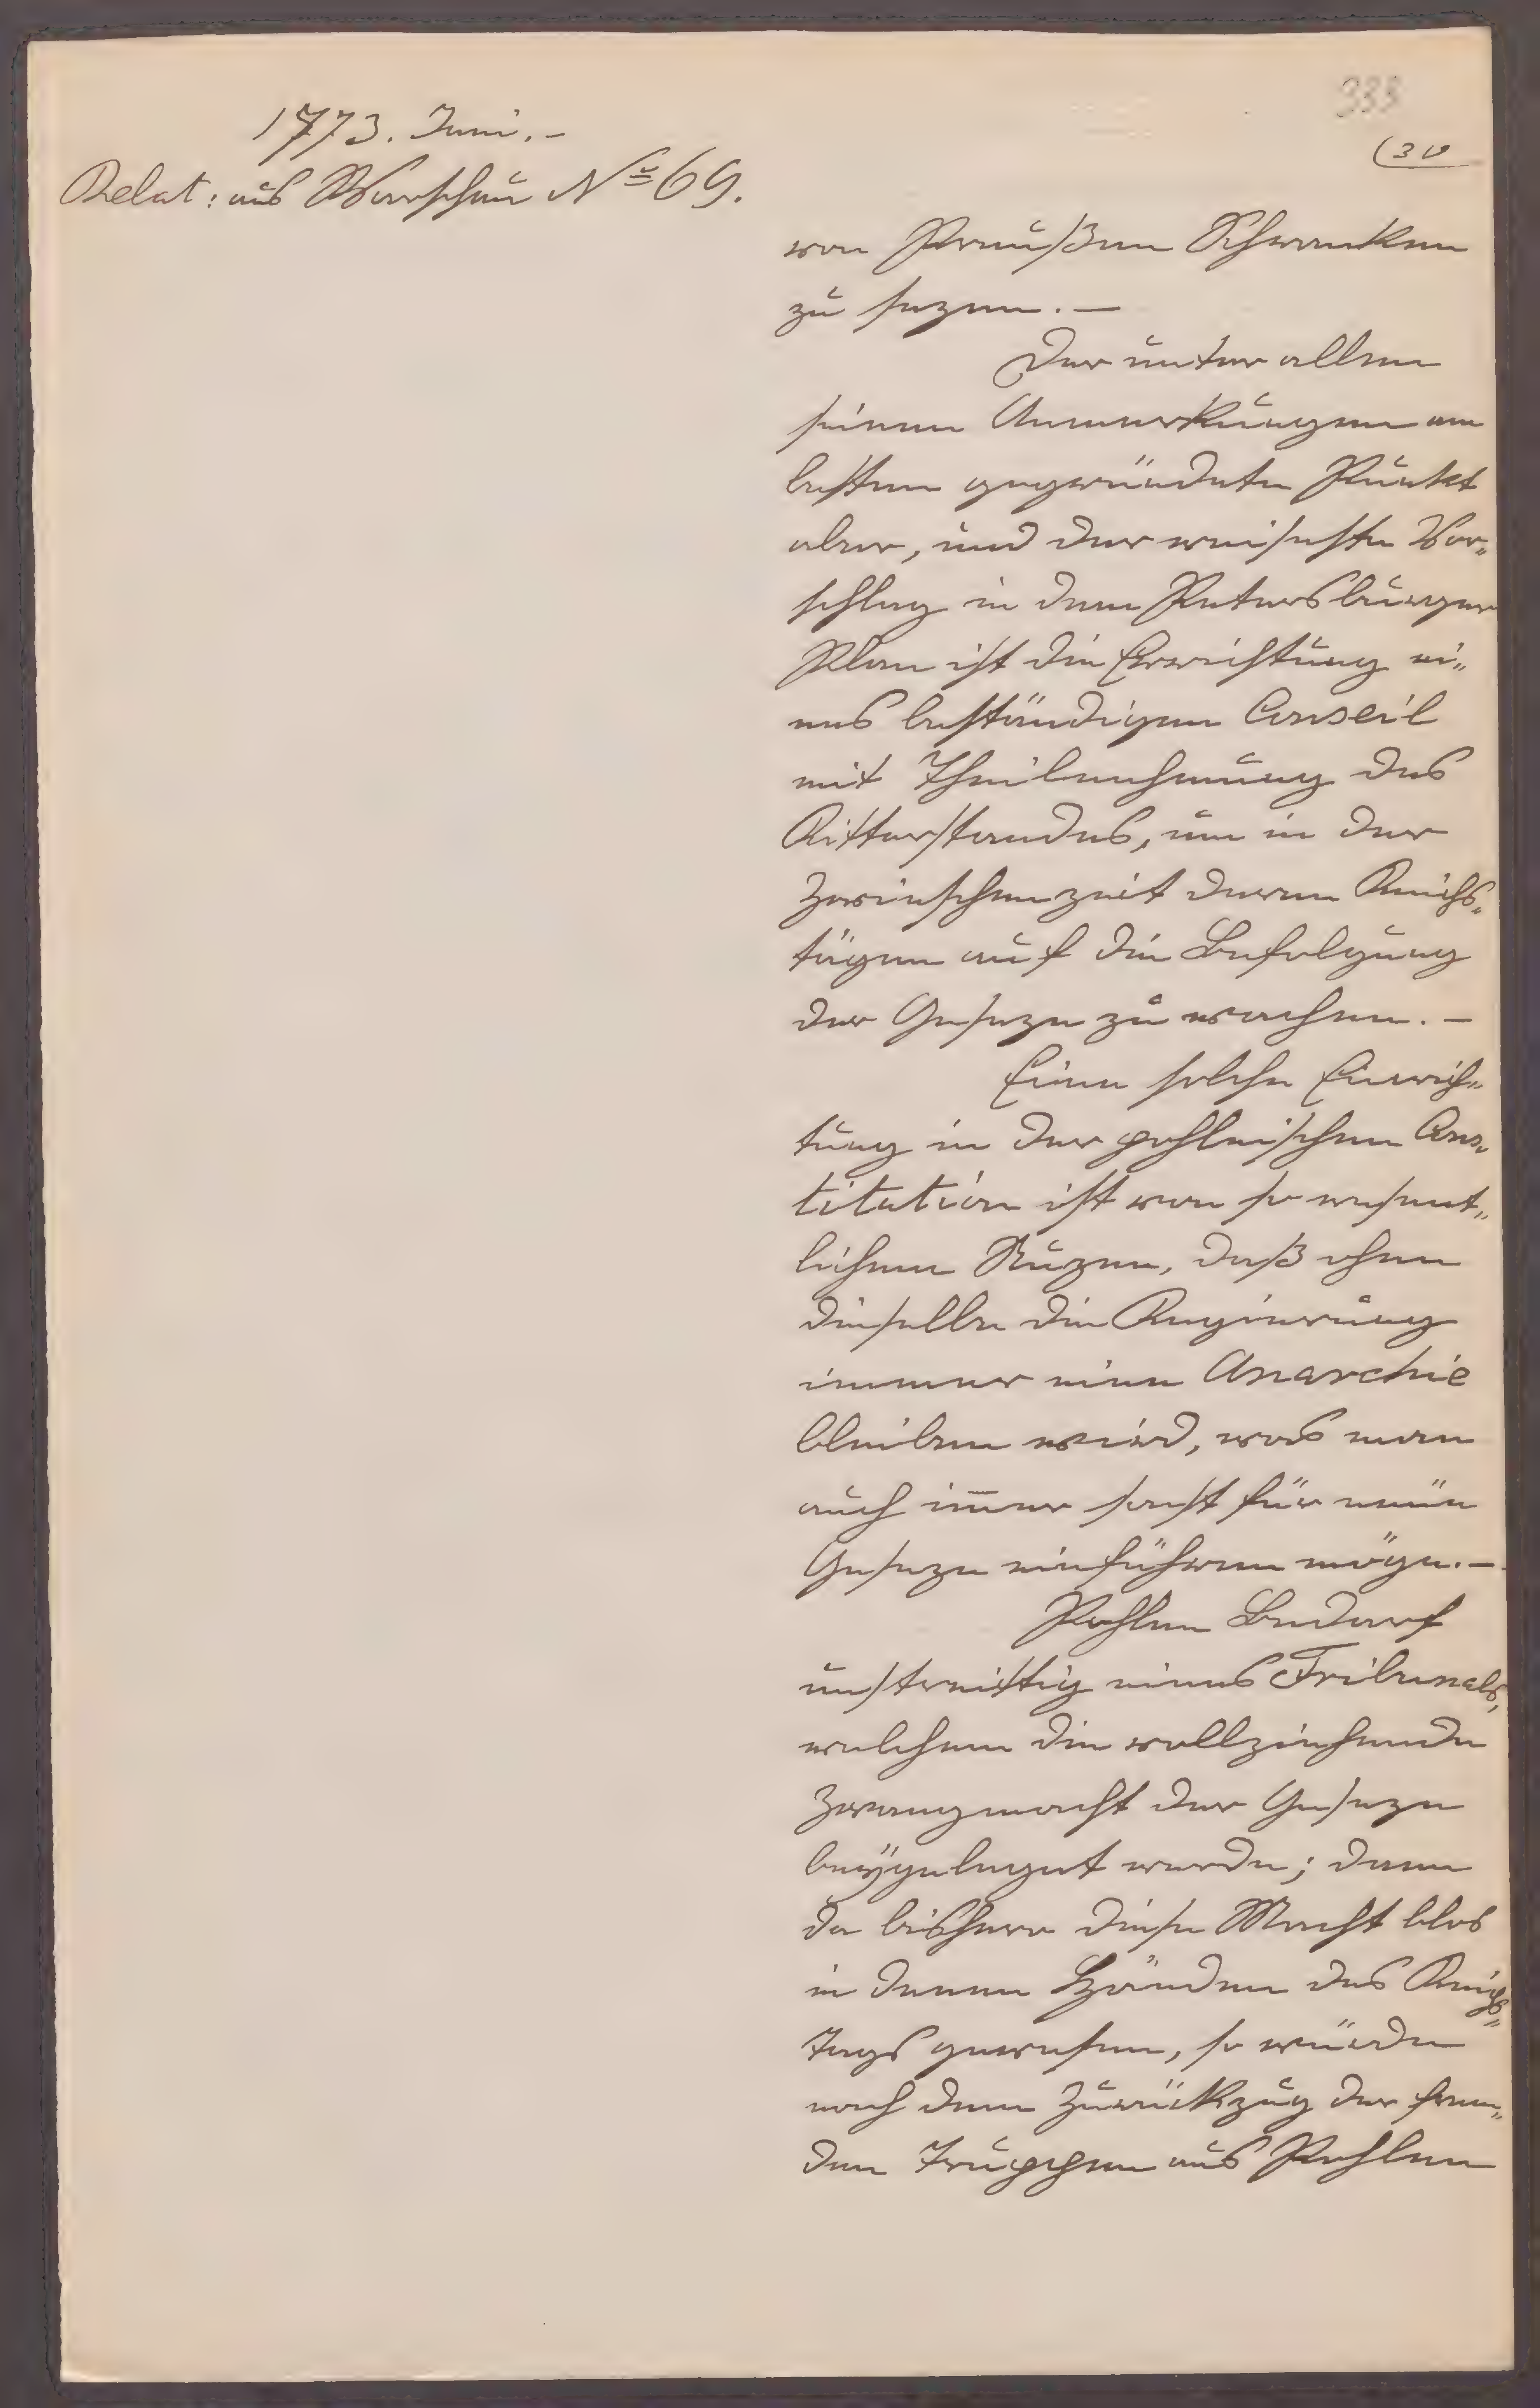 333
(30
1773. Juni. –
Relat: aus Warschau No 69.
von Preußen Schranken
zu sezen. –
Der unter allen
seinen Anmerkungen am
besten gegründete Punkt
aber, und der weiseste Vor„
schlag in dem Petersburger
Plan ist die Errichtung ei„
nes beständigen Conseil
mit Theilnehmung des
Ritterstandes, um in der
Zwischenzeit deren Reichs„
tägen auf die Befolgung
der Geseze zu wachen. –
Eine solche Einrich„
tung in der pohlnischen Cons„
titution ist von so wesent„
lichem Nuzen, daß ohne
dieselbe die Regierung
immer eine Anarchie
bleiben wird, was man
auch im̅er sonst für neüe
Geseze einführen möge. –
Pohlen Bedarf
unstreittig eines Tribunals,
welchem die vollziehende
Zwangmacht der Geseze
beÿgeleget werde; denn
da bishero diese Macht blos
in denen Händen des Reichs„
Tags gewesen, so würde
nach dem Zurückzug der frem„
den Truppen aus Pohlen